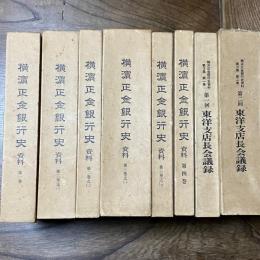 横濱正金銀行史
資料
第一巻
横濱正金銀行史
資料
横濱正金銀行史
資料
横濱正金銀行史
資料
横濱正金銀行史
資料
横濱正金銀行史
資料
第四巻
第一回
東洋支店長会議録
第二回
東洋支店長会議録